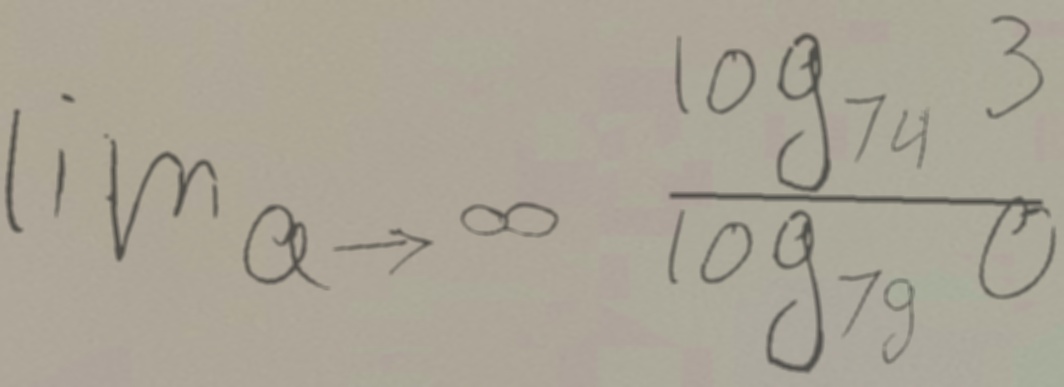 \lim_{a \to \infty} \frac{\log_{74} 3}{\log_{79} 0}